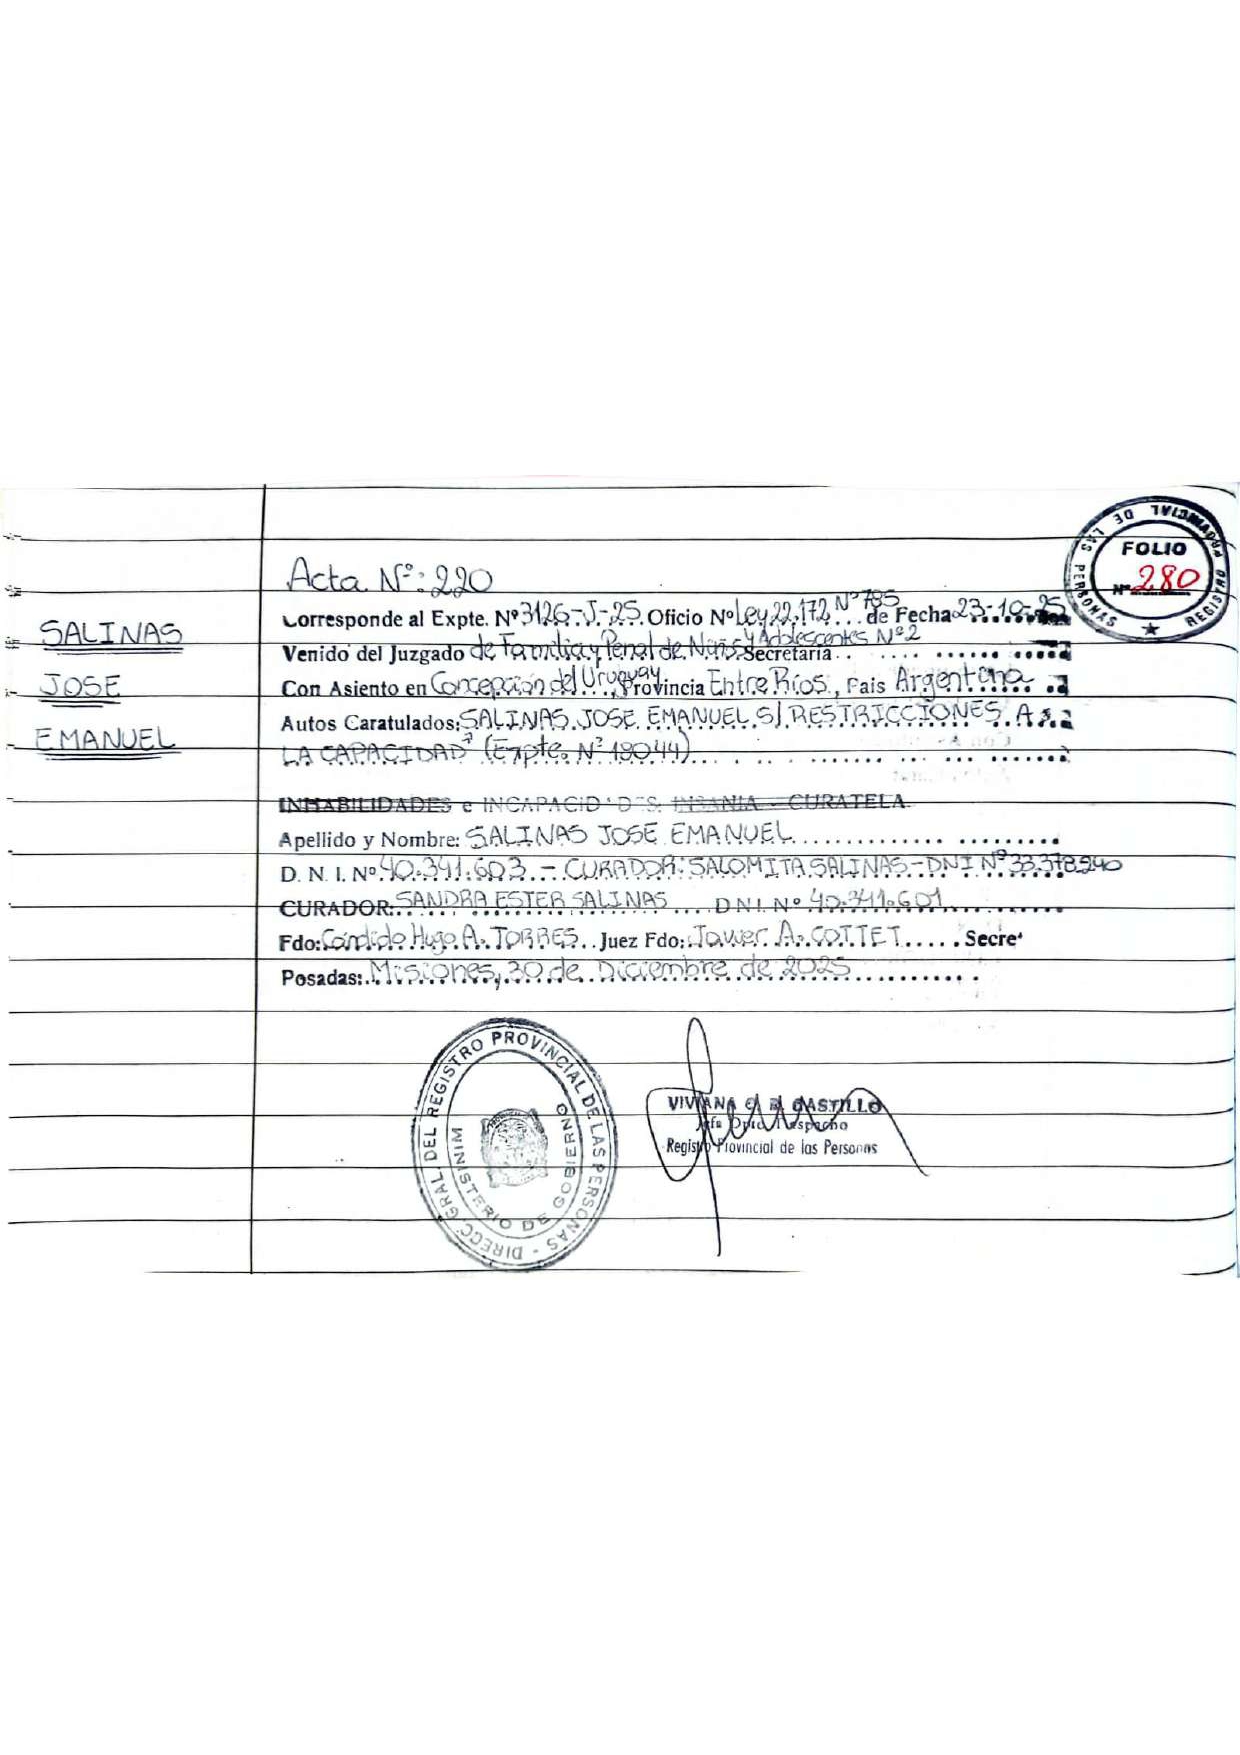 PROVINCIAL DE LAS PERSONAS REGISTRO
FOLIO
Nº 280
Acta Nº: 220
SALINAS
JOSE
EMANUEL
Corresponde al Expte. Nº 3126-J-25. Oficio Nº Ley 22.172 Nº 785 de Fecha 23-10-25
Venido del Juzgado de Familia y Penal de Niños y Adolescentes Nº 2 Secretaria
Con Asiento en Concepción del Uruguay, Provincia Entre Ríos, Pais Argentina
Autos Caratulados: SALINAS JOSE EMANUEL S/ RESTRICCIONES A
LA CAPACIDAD" (Expte. Nº 18044)
INHABILIDADES e INCAPACID DES. INSANIA - CURATELA
Apellido y Nombre: SALINAS JOSE EMANUEL
D. N. I. Nº 40.341.603. - CURADOR: SALOMITA SALINAS - DNI Nº 33.378.240
CURADOR: SANDRA ESTER SALINAS D N I. Nº 40.341.601
Fdo: Cándido Hugo A. TORRES. Juez Fdo: Javier A. COTTET Secre
Posadas: Misiones, 30 de Diciembre de 2025
DIRECC. GRAL. DEL REGISTRO PROVINCIAL DE LAS PERSONAS -
MINISTERIO DE GOBIERNO
VIVIANA CASTILLO
Jefa Dpto. Despacho
Registro Provincial de las Personas